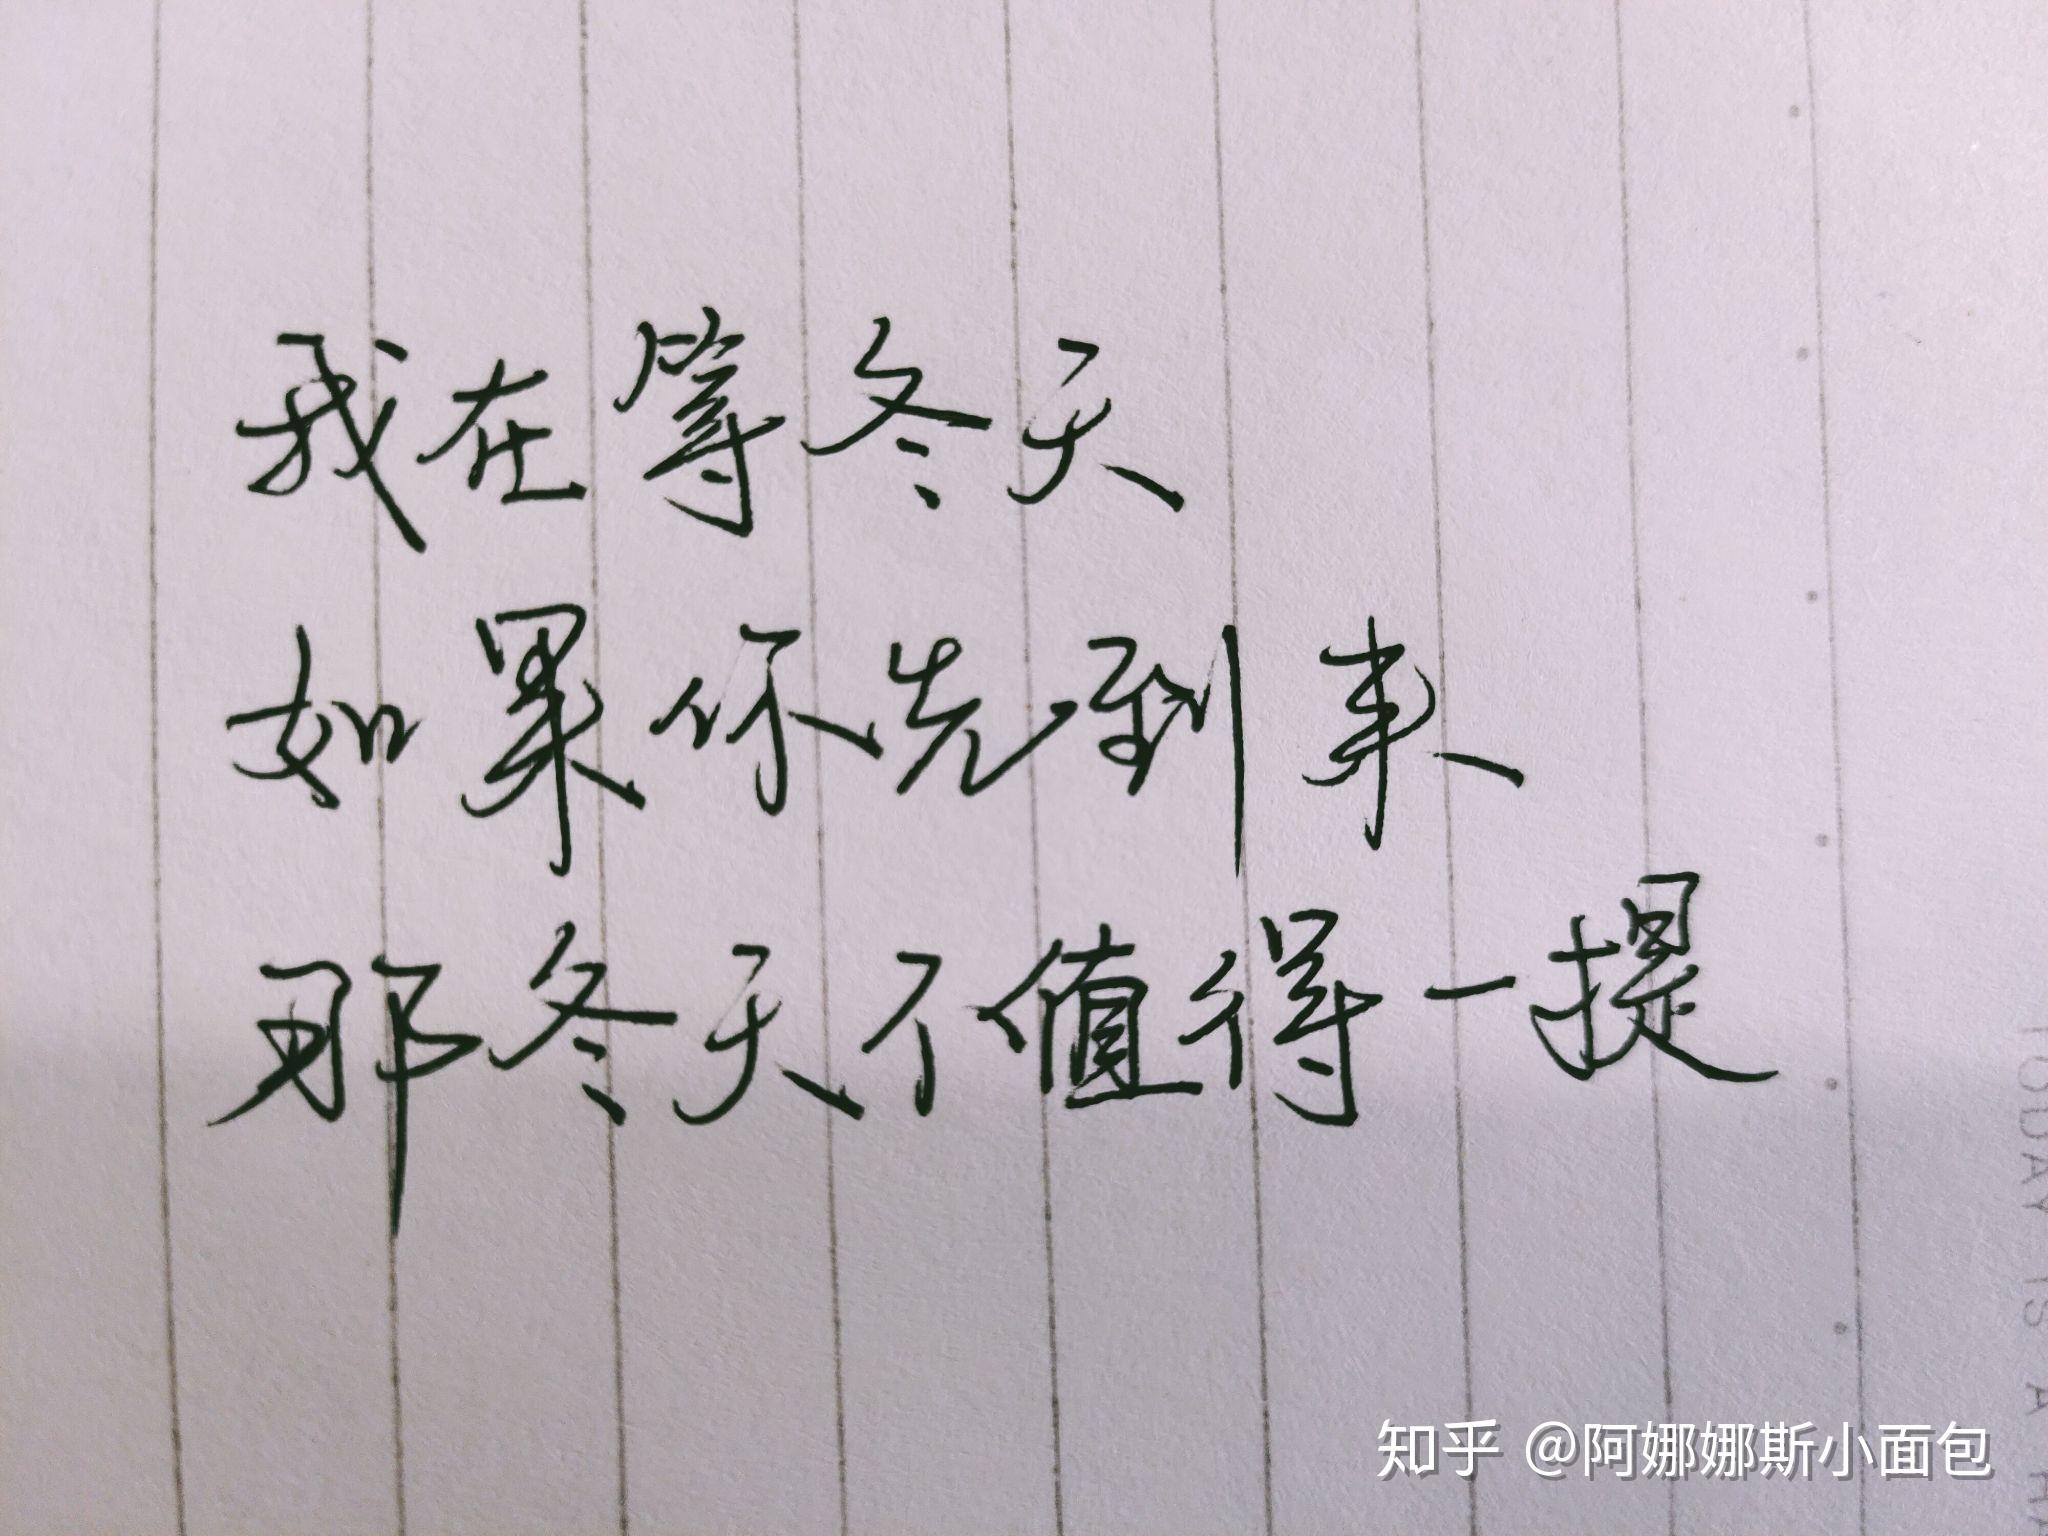 我在等冬天
如果你先到来
那冬天不值得一提
TODAY IS A
知乎 @阿娜娜斯小面包